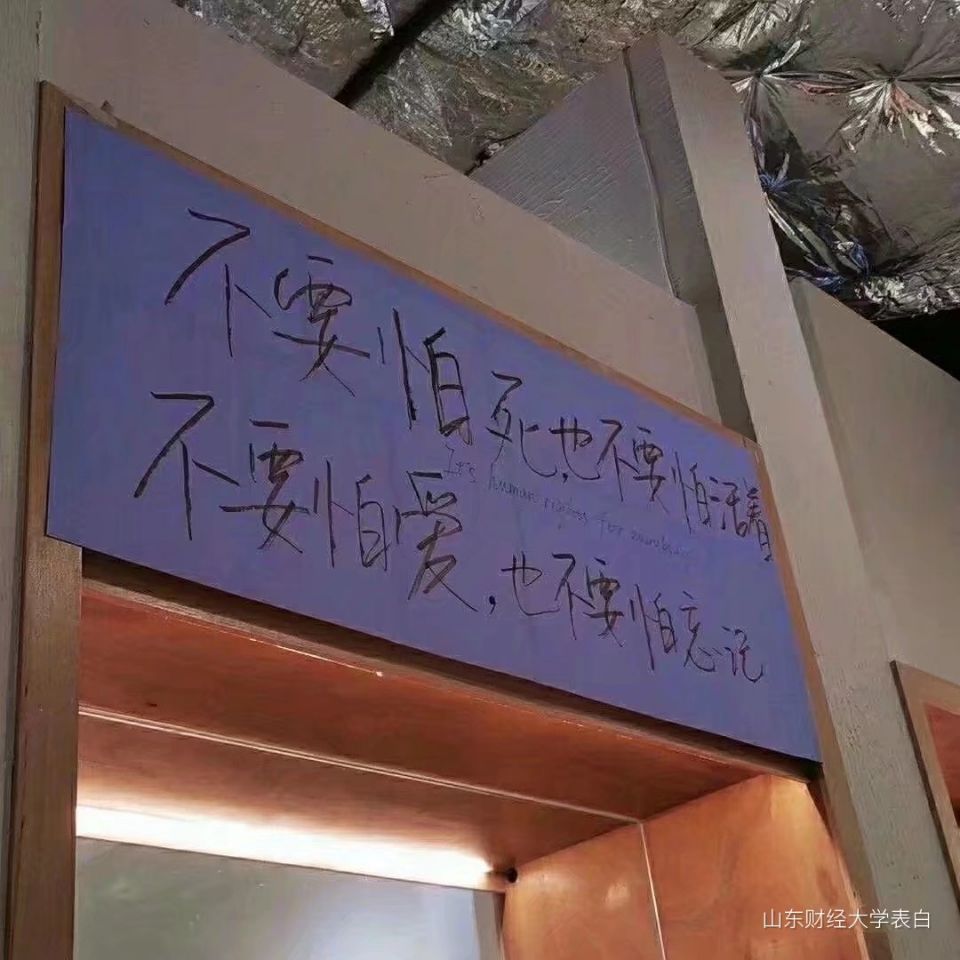 不要怕死,也不要怕活着
It's human rights for
不要怕爱,也不要怕忘记
山东财经大学表白